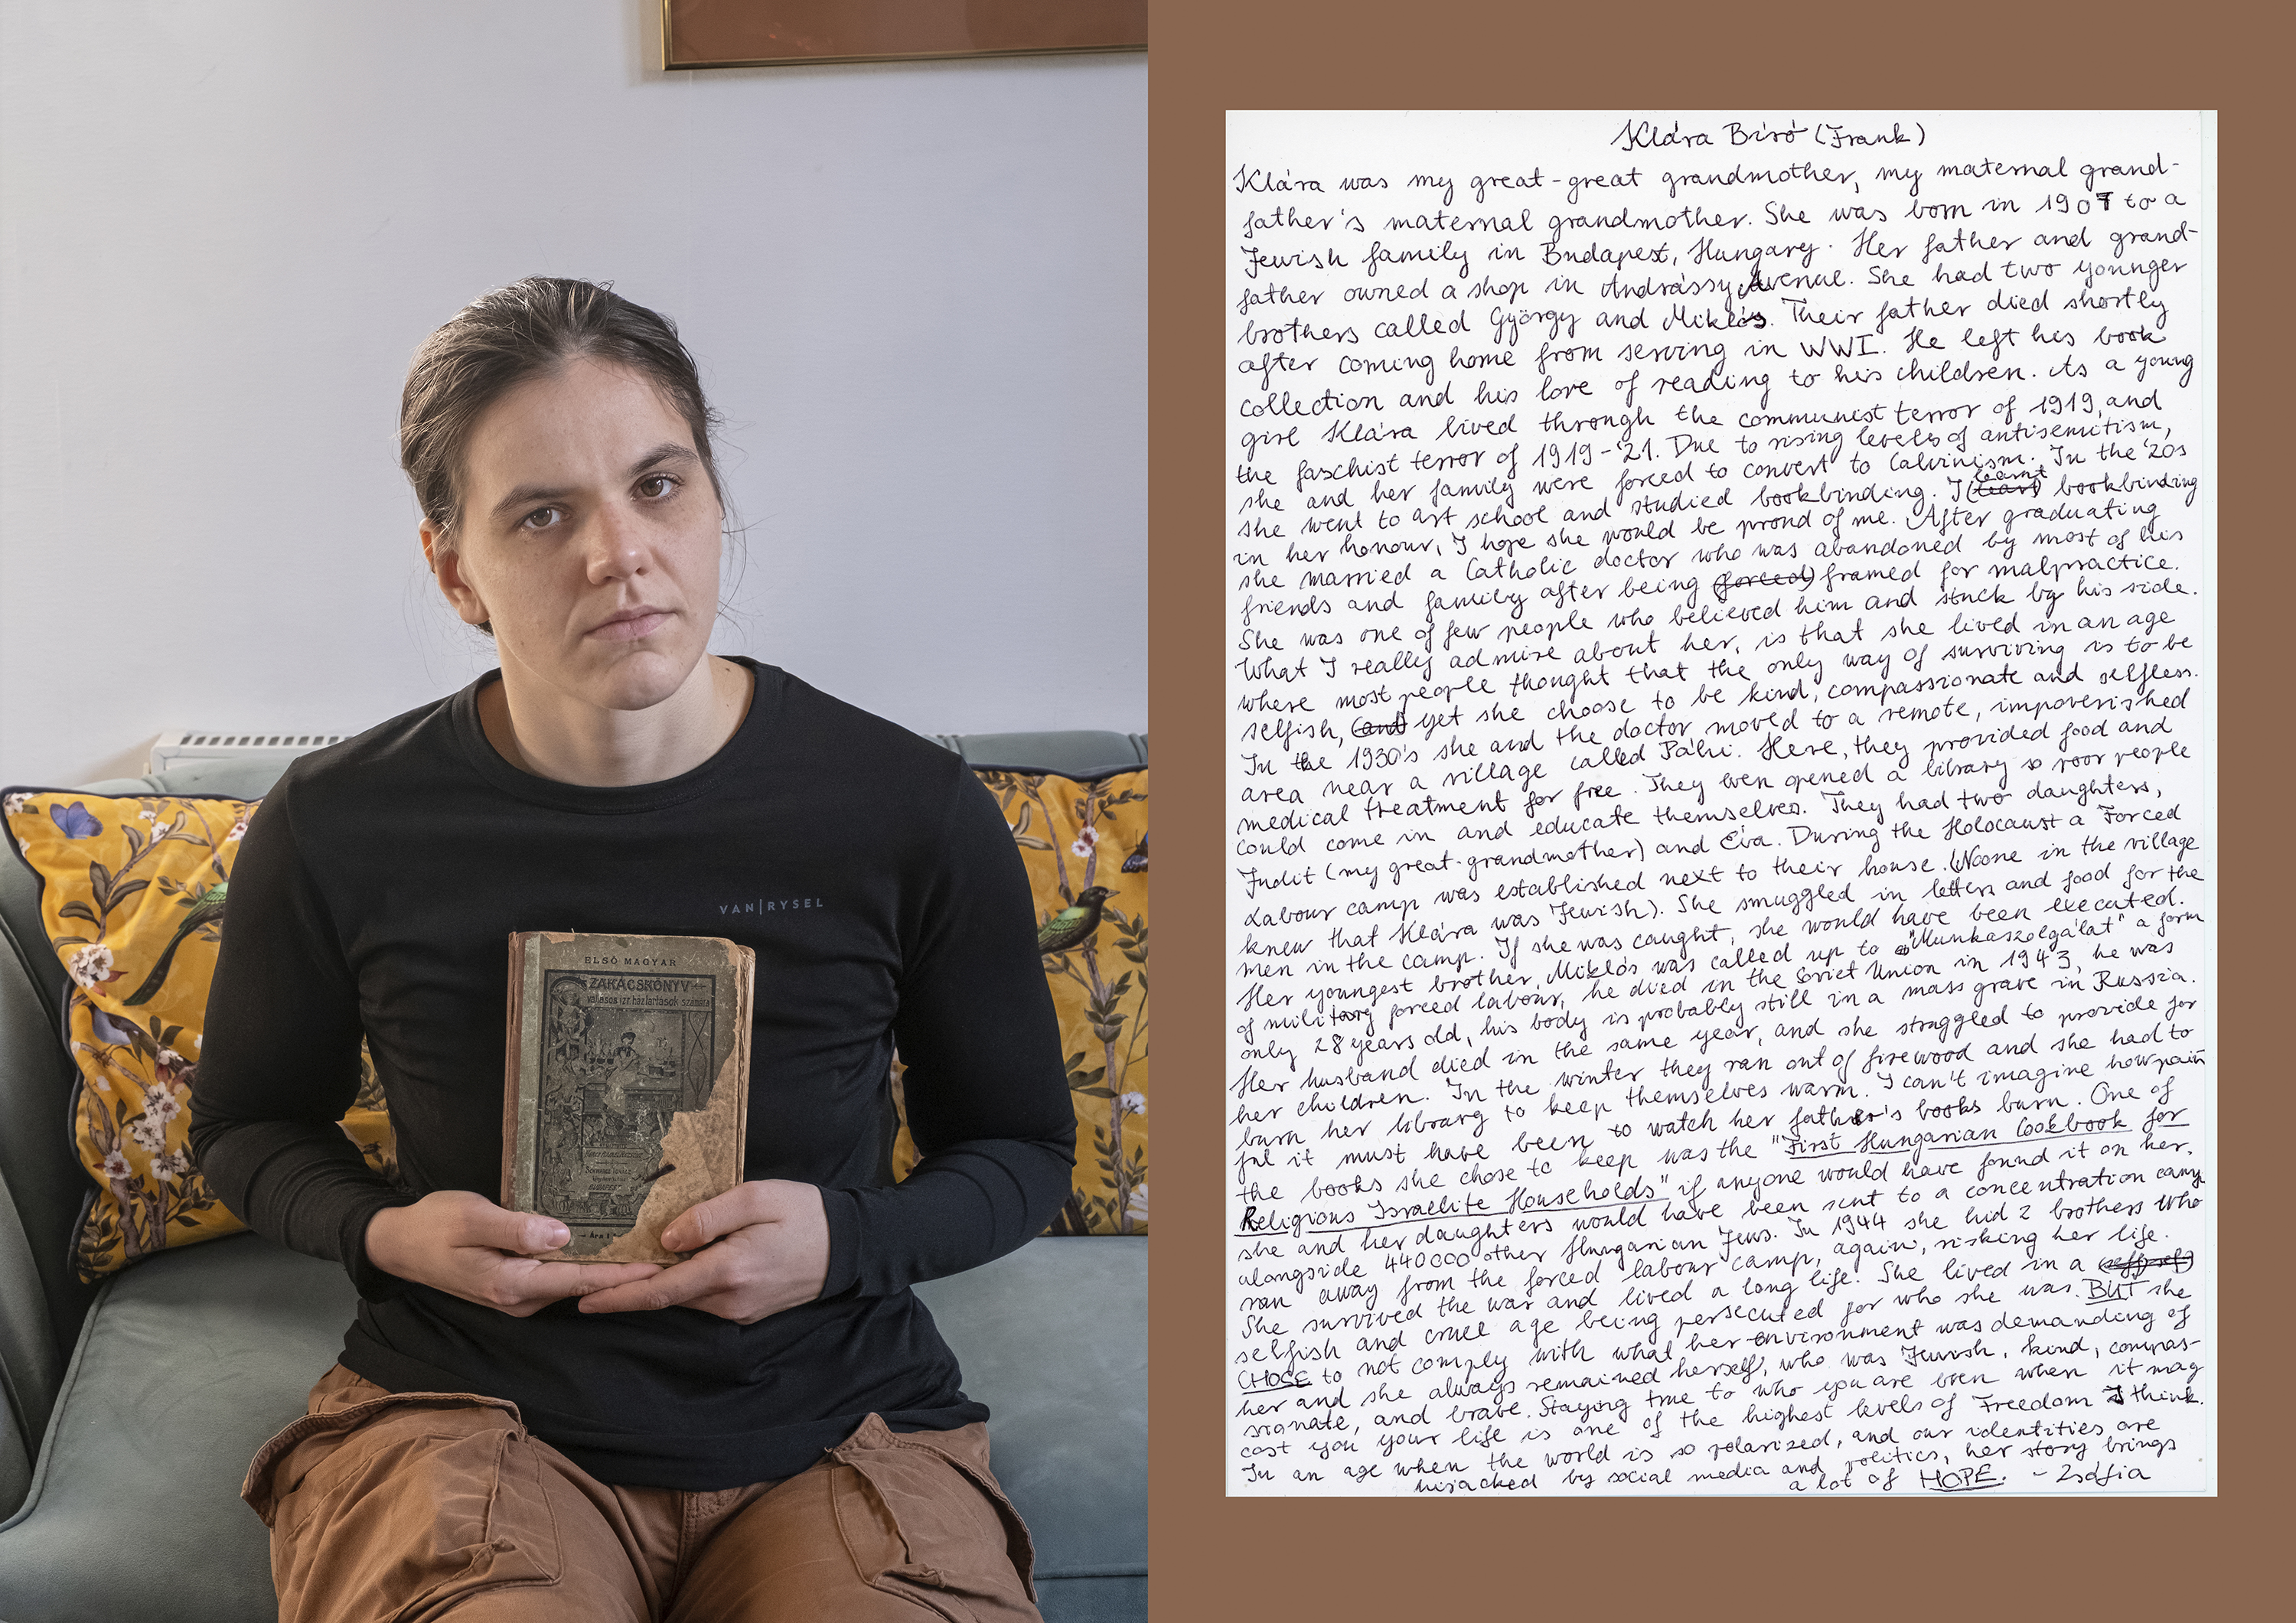 VAN|RYSEL
ELSŐ MAGYAR
ZAKÁCSKÖNYV
vallásos izr. háztartások számára
BUDAPEST
Ára 1
Klára Bíró (Frank)
Klára was my great-great grandmother, my maternal grand-
father's maternal grandmother. She was born in 1907 to a
Jewish family in Budapest, Hungary. Her father and grand-
father owned a shop in Andrássy Avenue. She had two younger
brothers called György and Miklós. Their father died shortly
after coming home from serving in WWI. He left his book
collection and his love of reading to his children. As a young
girl Klára lived through the communist terror of 1919, and
the faschist terror of 1919-'21. Due to rising levels of antisemitism,
she and her family were forced to convert to Calvinism. In the '20s
she went to art school and studied bookbinding. I learnt bookbinding
in her honour, I hope she would be proud of me. After graduating
she married a Catholic doctor who was abandoned by most of his
friends and family after being (forced) framed for malpractice.
She was one of few people who believed him and stuck by his side.
What I really admire about her, is that she lived in an age
where most people thought that the only way of surviving is to be
selfish, (and) yet she choose to be kind, compassionate and selfless.
In the 1930's she and the doctor moved to a remote, impoverished
area near a village called Páhi. Here, they provided food and
medical treatment for free. They even opened a library so poor people
could come in and educate themselves. They had two daughters,
Judit (my great-grandmother) and Éva. During the Holocaust a Forced
Labour camp was established next to their house. (Noone in the village
knew that Klára was Jewish). She smuggled in letters and food for the
men in the camp. If she was caught, she would have been executed.
Her youngest brother, Miklós was called up to "Munkaszolgálat" a form
of military forced labour, he died in the Soviet Union in 1943, he was
only 28 years old, his body is probably still in a mass grave in Russia.
Her husband died in the same year, and she struggled to provide for
her children. In the winter they ran out of firewood and she had to
burn her library to keep themselves warm. I can't imagine how pain
ful it must have been to watch her father's books burn. One of
the books she chose to keep was the "First Hungarian Cookbook for
Religious Israelite Households" if anyone would have found it on her,
she and her daughters would have been sent to a concentration camp
alongside 440000 other Hungarian Jews. In 1944 she hid 2 brothers who
ran away from the forced labour camp, again, risking her life.
She survived the war and lived a long life. She lived in a
selfish and cruel age being persecuted for who she was. BUT she
CHOSE to not comply with what her environment was demanding of
her and she always remained herself, who was Jewish, kind, compas-
sionate, and brave. Staying true to who you are even when it may
cost you your life is one of the highest levels of Freedom I think.
In an age when the world is so polarized, and our identities are
hijacked by social media and politics, her story brings
a lot of HOPE. - Zsófia